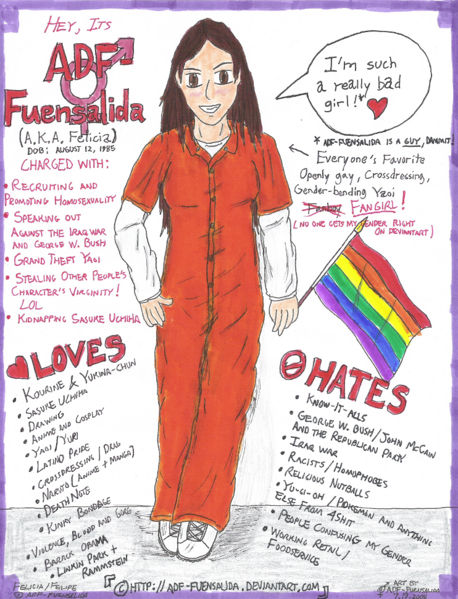 HEY, ITS
ADF
FUENSALIDA
(A.K.A. FELICIA)
DOB: AUGUST 12, 1985
CHARGED WITH:
• RECRUITING AND
PROMOTING HOMOSEXUALITY
• SPEAKING OUT
AGAINST THE IRAQ WAR
AND GEORGE W. BUSH
• GRAND THEFT YAOI
• STEALING OTHER PEOPLE'S
CHARACTER'S VIRGINITY!
LOL
• KIDNAPPING SASUKE UCHIHA
I'm such
a really bad
girl!*
* ADF-FUENSALIDA IS A GUY, DAMMIT!
← EVERYONE'S FAVORITE
OPENLY GAY, CROSSDRESSING,
GENDER-BENDING YAOI
FANBOY FANGIRL!
(NO ONE GETS MY GENDER RIGHT
ON DEVIANTART)
LOVES
• KOURINE & YURIKA-CHUN
• SASUKE UCHIHA
• DRAWING
• ANIME AND COSPLAY
• YAOI/YURI
• LATINO PRIDE
• CROSSDRESSING/DRAG
• NARUTO (ANIME + MANGA)
• DEATH NOTE
• KINKY BONDAGE
• VIOLENCE, BLOOD AND GORE
• BARACK OBAMA
• LINKIN PARK +
RAMMSTEIN
HATES
• KNOW-IT-ALLS
• GEORGE W. BUSH/JOHN MCCAIN
AND THE REPUBLICAN PARTY
• IRAQ WAR
• RACISTS/HOMOPHOBES
• RELIGIOUS NUTBALLS
• YU-GI-OH/POKEMON AND ANYTHING
ELSE FROM 4SHIT
• PEOPLE CONFUSING MY GENDER
• WORKING RETAIL/
FOODSERVICE
FELICIA/FELIPE
© ADF-FUENSALIDA
© HTTP://ADF-FUENSALIDA.DEVIANTART.COM
ART BY
© ADF-FUENSALIDA